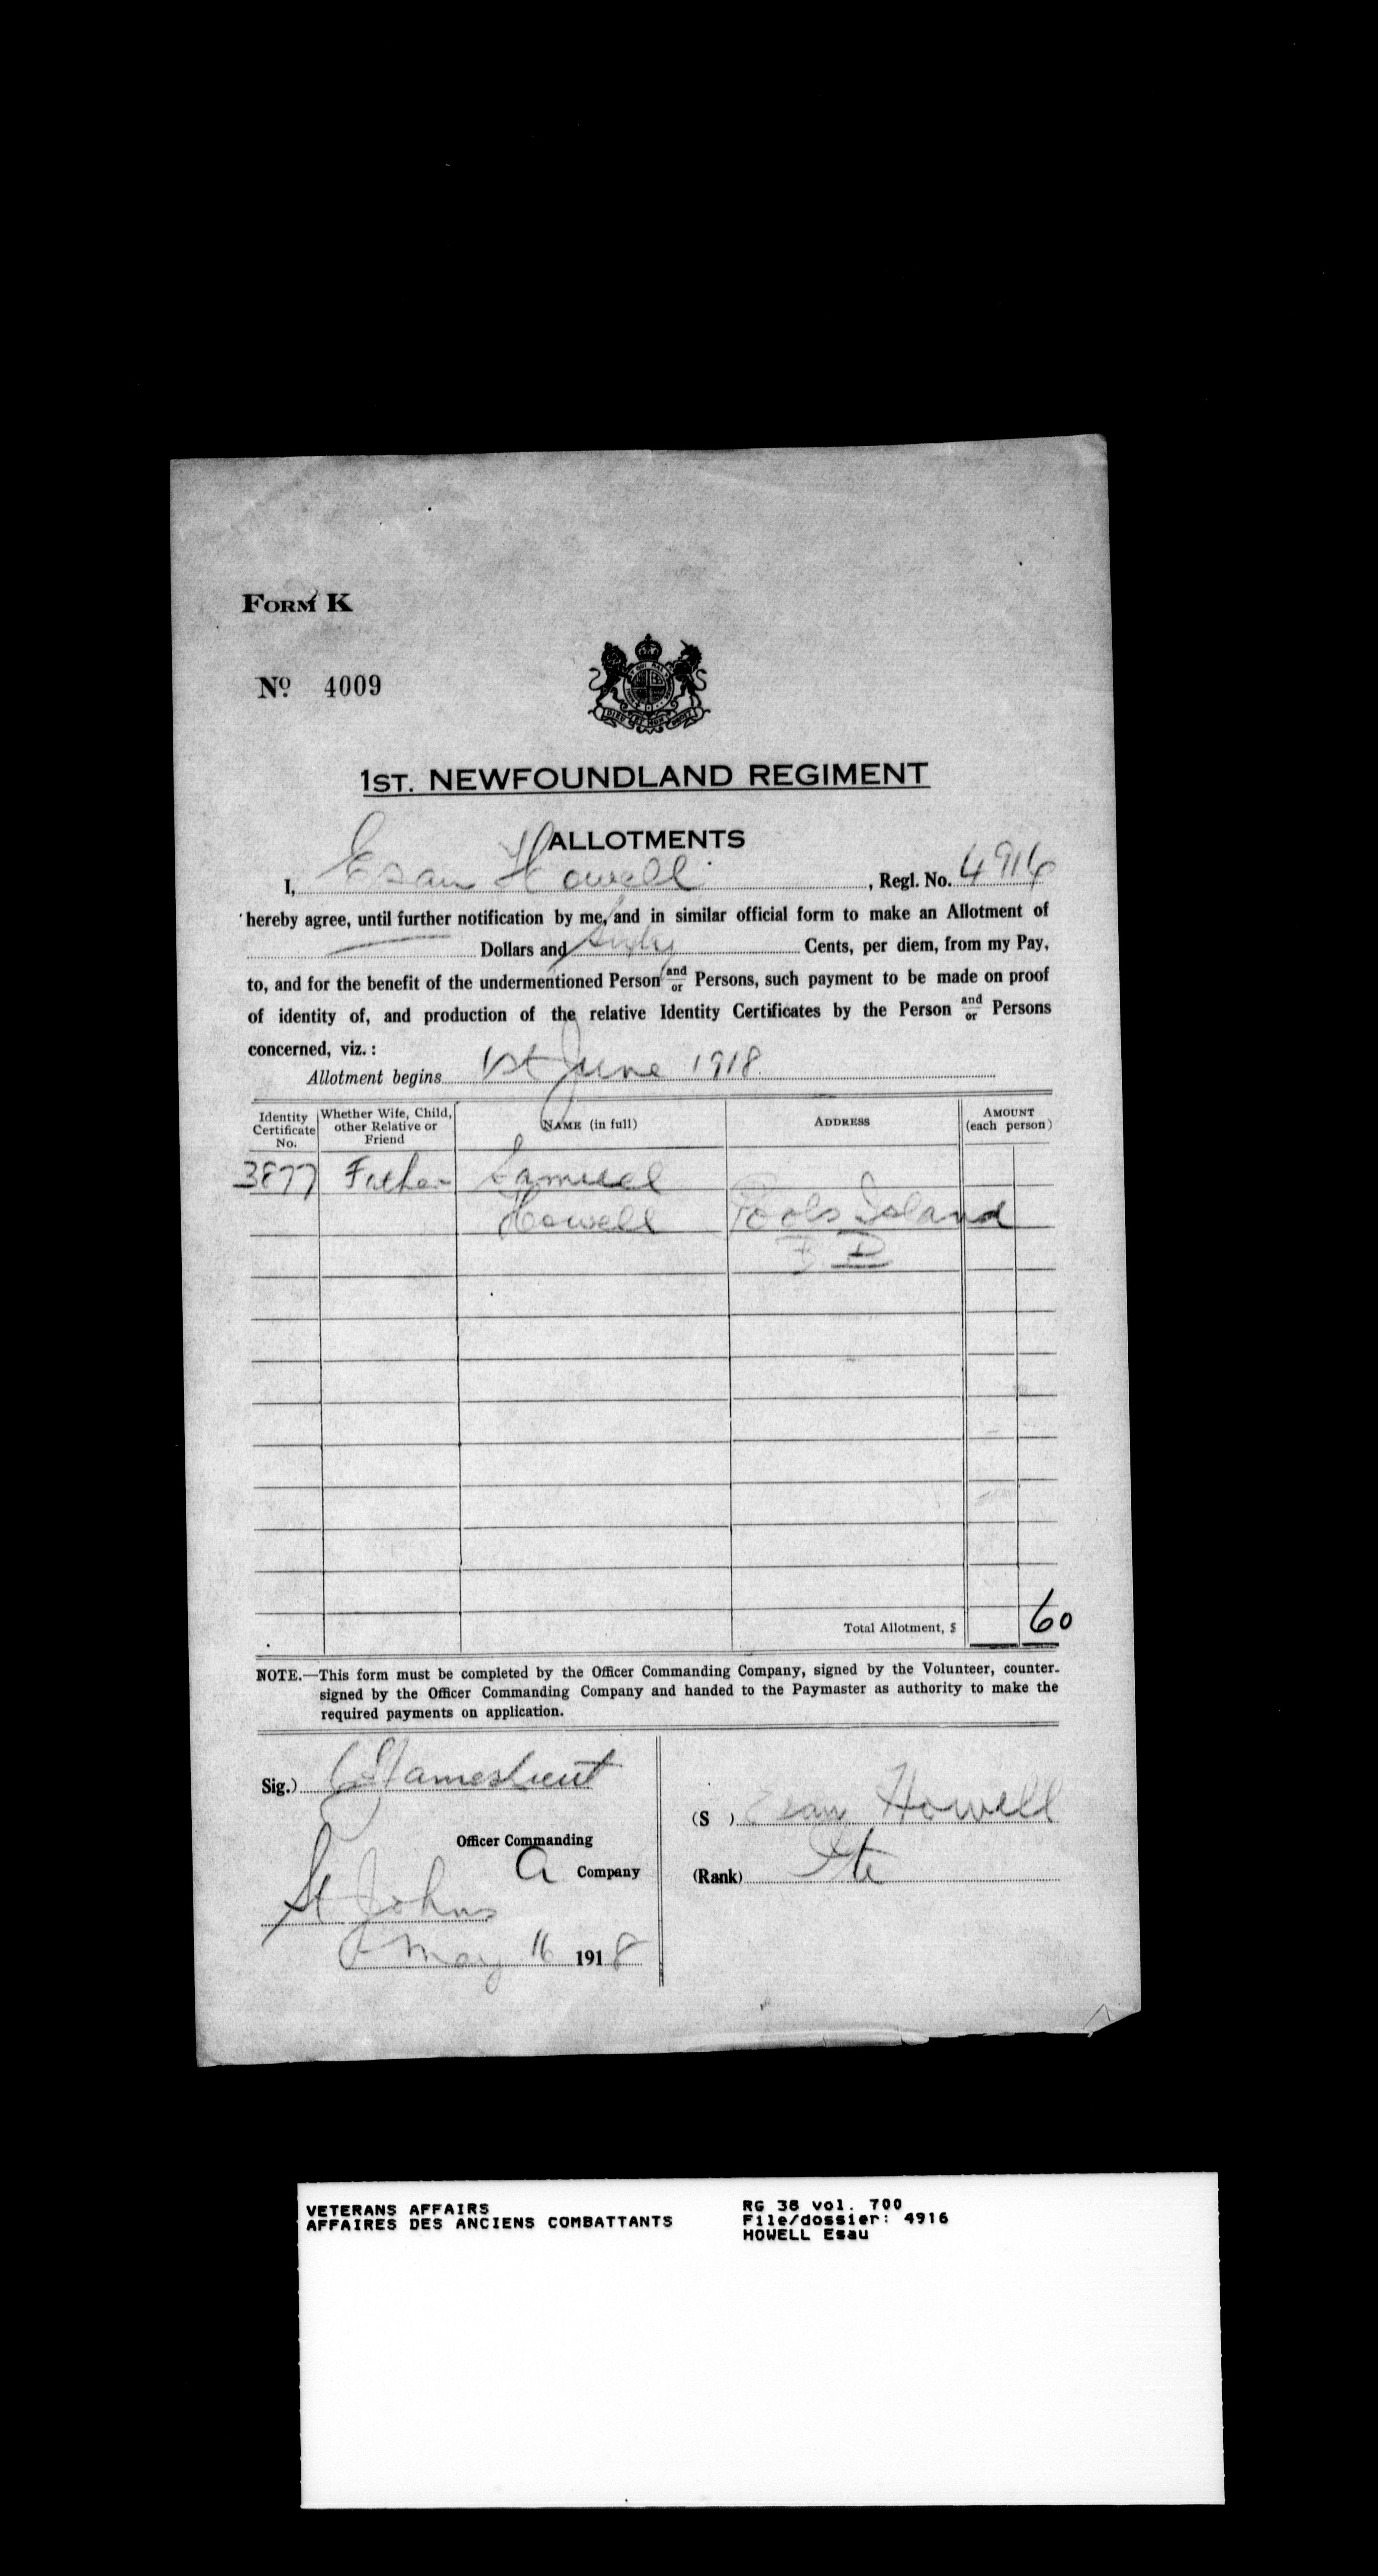 FORM K
No. 4009
1ST. NEWFOUNDLAND REGIMENT
ALLOTMENTS
I, Esau Howell, Regl. No. 4916
hereby agree, until further notification by me, and in similar official form to make an Allotment of
— Dollars and Sixty Cents, per diem, from my Pay,
to, and for the benefit of the undermentioned Person and/or Persons, such payment to be made on proof
of identity of, and production of the relative Identity Certificates by the Person and/or Persons
concerned, viz. :
Allotment begins 1st June 1918.
Identity Certificate No. Whether Wife, Child, other Relative or Friend NAME (in full) ADDRESS AMOUNT (each person)
3877 Father Samuel
Howell Pools Island
B B
Total Allotment, $ 60
NOTE.—This form must be completed by the Officer Commanding Company, signed by the Volunteer, counter-
signed by the Officer Commanding Company and handed to the Paymaster as authority to make the
required payments on application.
Sig.) James Lieut
Officer Commanding
A Company
St Johns
May 16 1918
(S ) Esau Howell
(Rank) Pte
VETERANS AFFAIRS
AFFAIRES DES ANCIENS COMBATTANTS
RG 38 vol. 700
File/dossier: 4916
HOWELL Esau